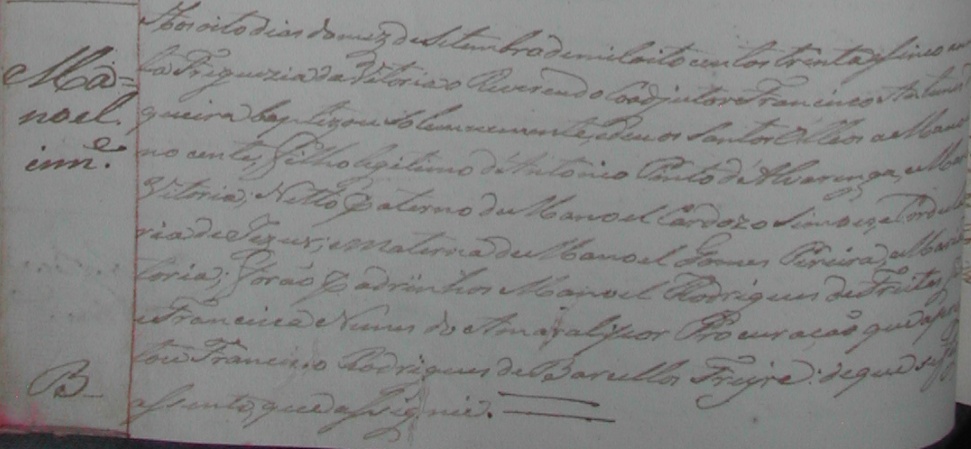 Ma=
noel.
inn.e
B
Aos oito dias do mez de Setembro de mil oito centos trenta e sinco
ta Freguezia da Vitoria o Reverendo Coadjutor Francisco Antunes
queira baptizou Solemnemente, e deu os Santos Oleos a Mano
no cente, Filho legitimo d'Antonio Pinto d'Alvarenga, e Mar
Vitoria; Netto Paterno de Manoel Cardozo Simoez, e
ria de Jezus; e materna de Manoel Gomes Pereira, e Mar
toria; forão Padrinhos Manoel Rodrigues de Freitas
e Francisca Nunes do Amaral; por Procuracaõ que apre
tou Francisco Rodrigues de Barcellos Freyre: de que fis
assento, que assignei.